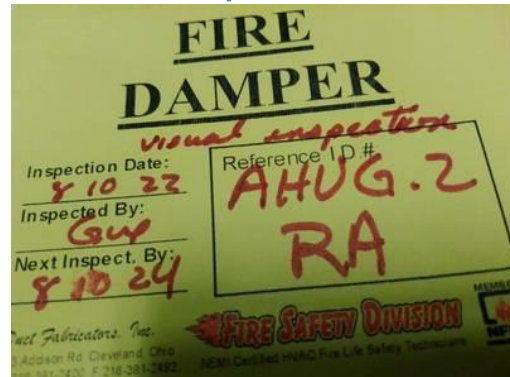 FIRE
DAMPER
visual inspection
Inspection Date:
8 10 22
Inspected By:
Guy
Next Inspect. By:
8 10 24
Reference I.D.#
AHUG.2
RA
Duct Fabricators, Inc.
Addison Rd. Cleveland, Ohio
381-2400 F 216-381-2492
FIRE SAFETY DIVISION
NEMI Certified HVAC Fire Life Safety Technicians
MEMBE